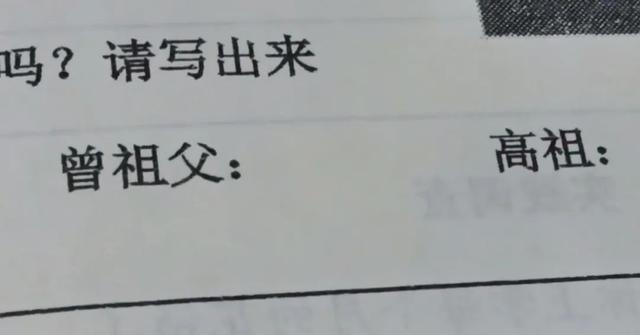 吗？请写出来
曾祖父： 高祖：